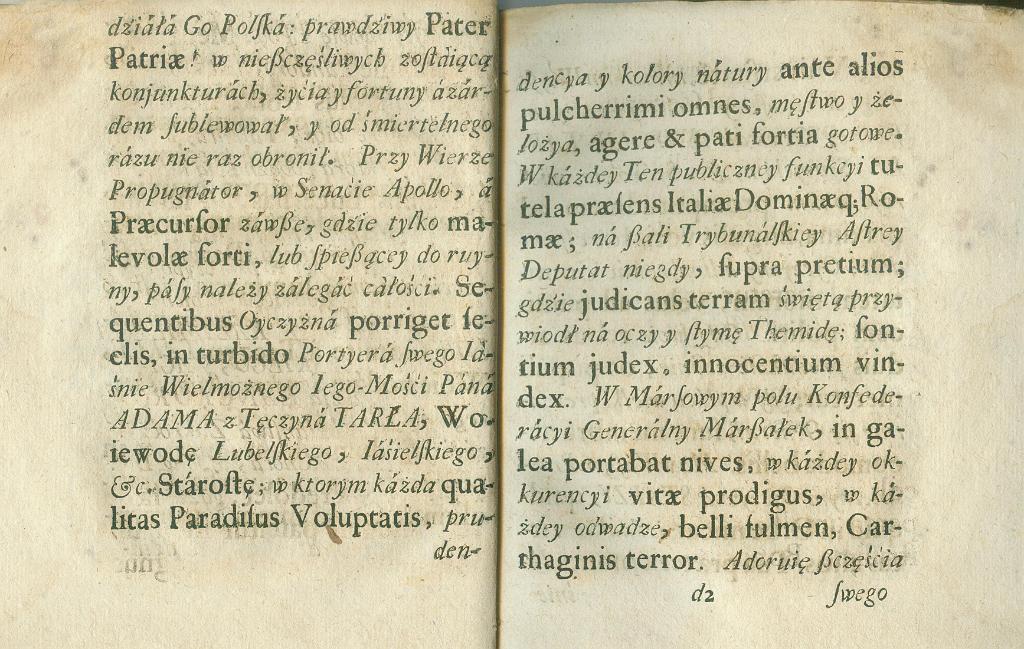 dźiáłá Go Polſká: prawdźiwy Pater
Patriæ! w nießczęśliwych zoſtáiącą
konjunkturách, życia y fortuny ázár-
dem ſublewował, y od śmiertelnego
rázu nie raz obronił. Przy Wierze
Propugnátor, w Senacie Apollo, á
Præcurſor záwße, gdzie tylko ma-
levolæ ſorti, lub ſpießącey do ruy-
ny, páſy należy zálegáć cáłośći. Se-
quentibus Oyczyżná porriget ſe-
clis, in turbido Portyerá ſwego Iá-
śnie Wielmożnego Iego-Mośći Páná
ADAMA z Tęczyná TARŁA, Wo-
iewodę Lubelſkiego, Iáśielſkiego,
&c. Stároſtę; w ktorym káżda qua-
litas Paradiſus Voluptatis, pru-
den-
dencya y kolory nátury ante alios
pulcherrimi omnes, męſtwo y że-
lożya, agere & pati fortia gotowe.
W káżdey Ten publiczney funkcyi tu-
tela præſens Italiæ Dominæq; Ro-
mæ; ná ßali Trybunálſkiey Aſtrey
Deputat niegdy, ſupra pretium;
gdzie judicans terram świętą przy-
wiodł ná oczy y ſtymę Themidę; ſon-
tium judex, innocentium vin-
dex. W Márſowym polu Konfede-
rácyi Generálny Márßałek, in ga-
lea portabat nives, w káżdey ok-
kurencyi vitæ prodigus, w ká-
żdey odwadze, belli fulmen, Car-
thaginis terror. Adoruię ßczęśćia
d2 ſwego